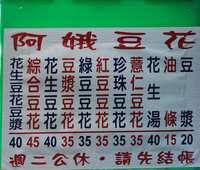 阿娥豆花
花生豆花豆漿 40
綜合豆花 45
豆漿豆花 35
綠豆豆花 35
紅豆豆花 35
珍珠豆花 35
薏仁豆花 35
花生湯 40
油條 15
豆漿 20
週二公休・請先結帳